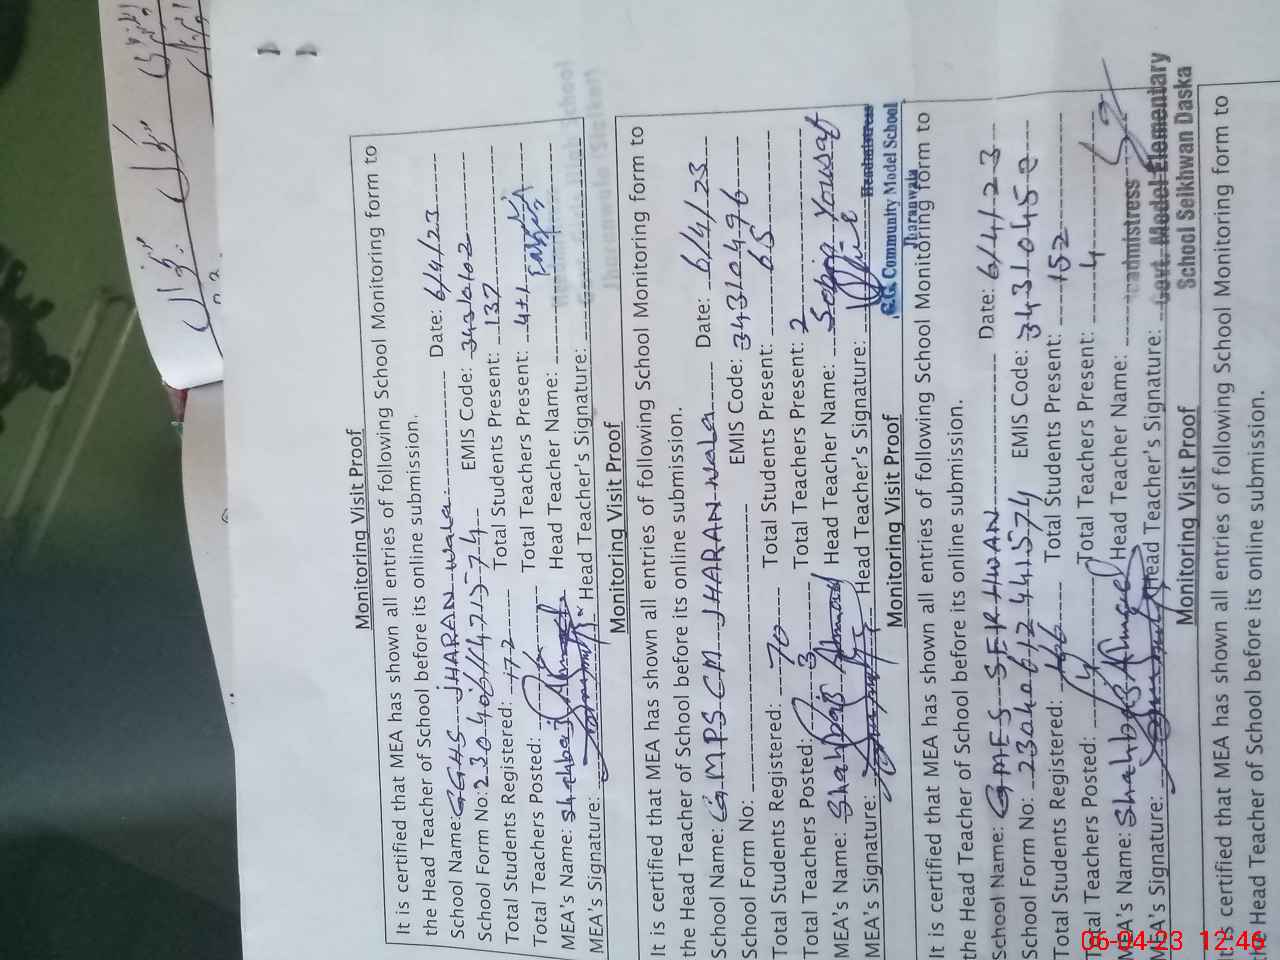 Monitoring Visit Proof
It is certified that MEA has shown all entries of following School Monitoring form to
the Head Teacher of School before its online submission.
School Name: GGHS JHARAN wala Date: 6/4/23
School Form No: EMIS Code:
Total Students Registered: 172 Total Students Present: 137
Total Teachers Posted: Total Teachers Present: 4+1
MEA's Name: Shahbaz Ahmed Head Teacher Name:
MEA's Signature: Head Teacher's Signature:
Monitoring Visit Proof
It is certified that MEA has shown all entries of following School Monitoring form to
the Head Teacher of School before its online submission.
School Name: GMPS CM JHARAN wala Date: 6/4/23
School Form No: EMIS Code: 34310496
Total Students Registered: 70 Total Students Present: 65
Total Teachers Posted: 3 Total Teachers Present: 2
MEA's Name: Shahbaz Ahmad Head Teacher Name: Yousaf
MEA's Signature: Head Teacher's Signature:
Headmistress
G.G. Community Model School
Jharanwala
Monitoring Visit Proof
It is certified that MEA has shown all entries of following School Monitoring form to
the Head Teacher of School before its online submission.
School Name: GMES SEKHWAN Date: 6/4/23
School Form No: EMIS Code: 34310452
Total Students Registered: 166 Total Students Present: 152
Total Teachers Posted: 4 Total Teachers Present: 4
MEA's Name: Shahbaz Ahmed Head Teacher Name:
MEA's Signature: Head Teacher's Signature:
Headmistress
Govt. Model Elementary
School Seikhwan Daska
Monitoring Visit Proof
It is certified that MEA has shown all entries of following School Monitoring form to
the Head Teacher of School before its online submission.
06-04-23 12:46